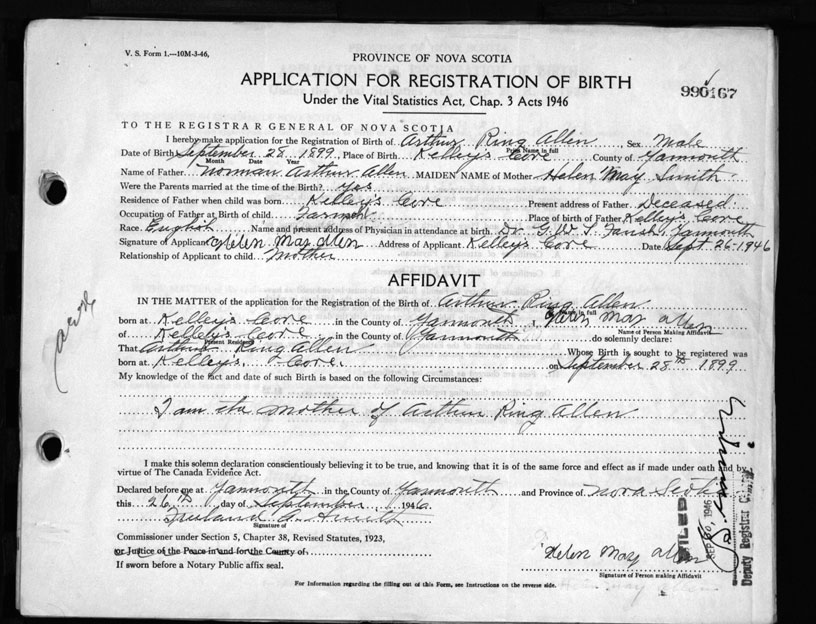 V. S. Form 1.—10M-3-46,
PROVINCE OF NOVA SCOTIA
APPLICATION FOR REGISTRATION OF BIRTH
990167
Under the Vital Statistics Act, Chap. 3 Acts 1946
TO THE REGISTRAR GENERAL OF NOVA SCOTIA
I hereby make application for the Registration of Birth of Arthur Ring Allen Sex Male
Print Name in full
Date of Birth September 28 1899, Place of Birth Kelley's Cove County of Yarmouth
Month Date Year
Name of Father Norman Arthur Allen MAIDEN NAME of Mother Helen May Smith
Were the Parents married at the time of the Birth? Yes
Residence of Father when child was born Kelley's Cove Present address of Father Deceased
Occupation of Father at Birth of child. Place of birth of Father Kelley's Cove
Race. English Name and present address of Physician in attendance at birth. Dr. G. W. T. Farish, Yarmouth
Signature of Applicant Helen May Allen Address of Applicant Kelley's Cove Date Sept 26-1946
Relationship of Applicant to child Mother
AFFIDAVIT
IN THE MATTER of the application for the Registration of the Birth of Arthur Ring Allen
born at Kelley's Cove in the County of Yarmouth I, Helen May Allen
Name of Person Making Affidavit
of Kelley's Cove in the County of Yarmouth do solemnly declare:
Present Residence
That Arthur Ring Allen Whose Birth is sought to be registered was
born at Kelley's Cove. on September 28th 1899
My knowledge of the fact and date of such Birth is based on the following Circumstances:
I am the mother of Arthur Ring Allen
I make this solemn declaration conscientiously believing it to be true, and knowing that it is of the same force and effect as if made under oath and by
virtue of The Canada Evidence Act.
Declared before me at Yarmouth in the County of Yarmouth and Province of Nova Scotia
this 26th day of September 1946
Signature of
Commissioner under Section 5, Chapter 38, Revised Statutes, 1923,
or Justice of the Peace in and for the County of
If sworn before a Notary Public affix seal.
Helen May Allen
Signature of Person making Affidavit
For Information regarding the filling out of this Form, see Instructions on the reverse side.
FILED
SEP 30, 1946
Deputy Registrar